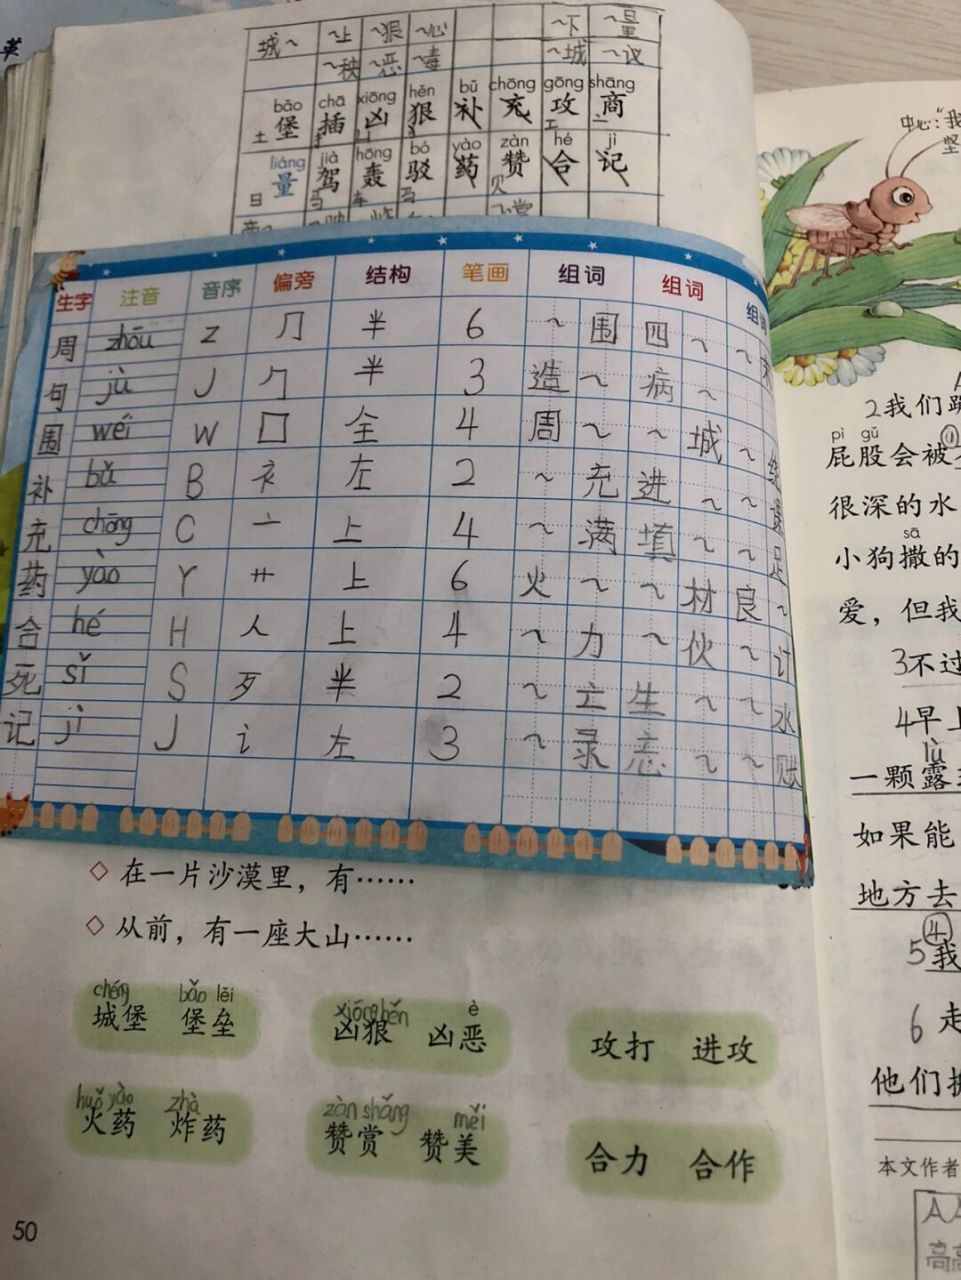 城～ ～上 ～狠 ～心 ～下 ～量
～秧 ～恶 ～毒 ～城 ～议
bǎo chā xiōng hěn bǔ chōng gōng shāng
堡 插 凶 狠 补 充 攻 商
土 扌 凵 工
liáng jià hōng bó yào zàn hé jì
量 驾 轰 驳 药 赞 合 记
日 马 车 马 贝
商～ ～赏
生字 注音 音序 偏旁 结构 笔画 组词 组词 组词
周 zhōu Z 冂 半 6 ～围 四～ ～末
句 jù J 勹 半 3 造～ 病～
围 wéi W 囗 全 4 周～ ～城 ～绕
补 bǔ B 衤 左 2 ～充 进～ ～贵
充 chōng C 亠 上 4 ～满 填～ ～足
药 yào Y 艹 上 6 火～ ～材 良～
合 hé H 人 上 4 ～力 ～伙 ～订
死 sǐ S 歹 半 2 ～亡 生～ ～水
记 jì J 讠 左 3 ～录 忘～ ～账
◇ 在一片沙漠里，有……
◇ 从前，有一座大山……
chéng bǎo lěi xiōng hěn è
城堡 堡垒 凶狠 凶恶 攻打 进攻
huǒ yào zhà zàn shǎng měi
火药 炸药 赞赏 赞美 合力 合作
50
中心:"我
坚
2我们
pì gǔ ①
屁股会被
很深的水
sā
小狗撒的
爱，但我
3不过
4早上
lù
一颗露
如果能
地方去
④
5我
6 走
他们
本文作者
A A
高高